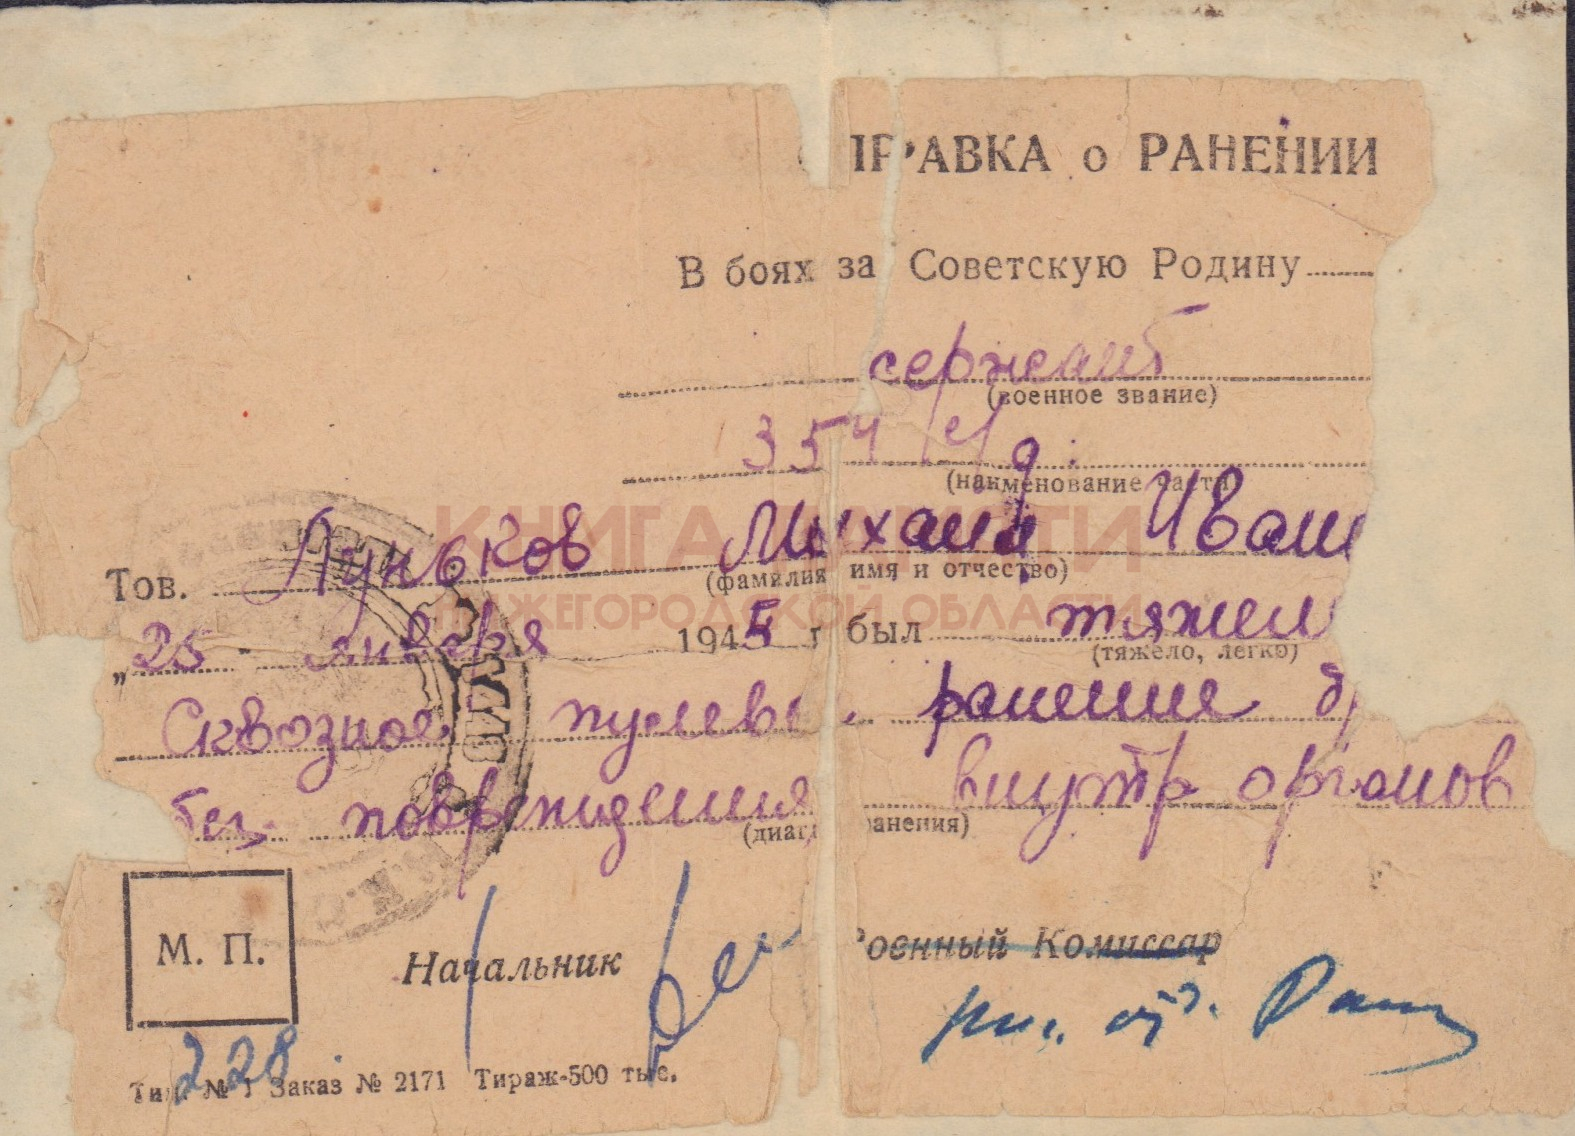 ПРАВКА о РАНЕНИИ
В боях за Советскую Родину
сержант
(военное звание)
354
(наименование части)
Тов. Луньков Михаил Иван
(фамилия имя и отчество)
„25 " января 1945 г был тяжел
(тяжело, легко)
Сквозное пулев ранение
без повреждения внутр органов
(диаг ранения)
М. П.
Начальник
Военный Комиссар
228
Тип. № 1 Заказ № 2171 Тираж-500 тыс.
КНИГА ПАМЯТИ
НИЖЕГОРОДСКОЙ ОБЛАСТИ